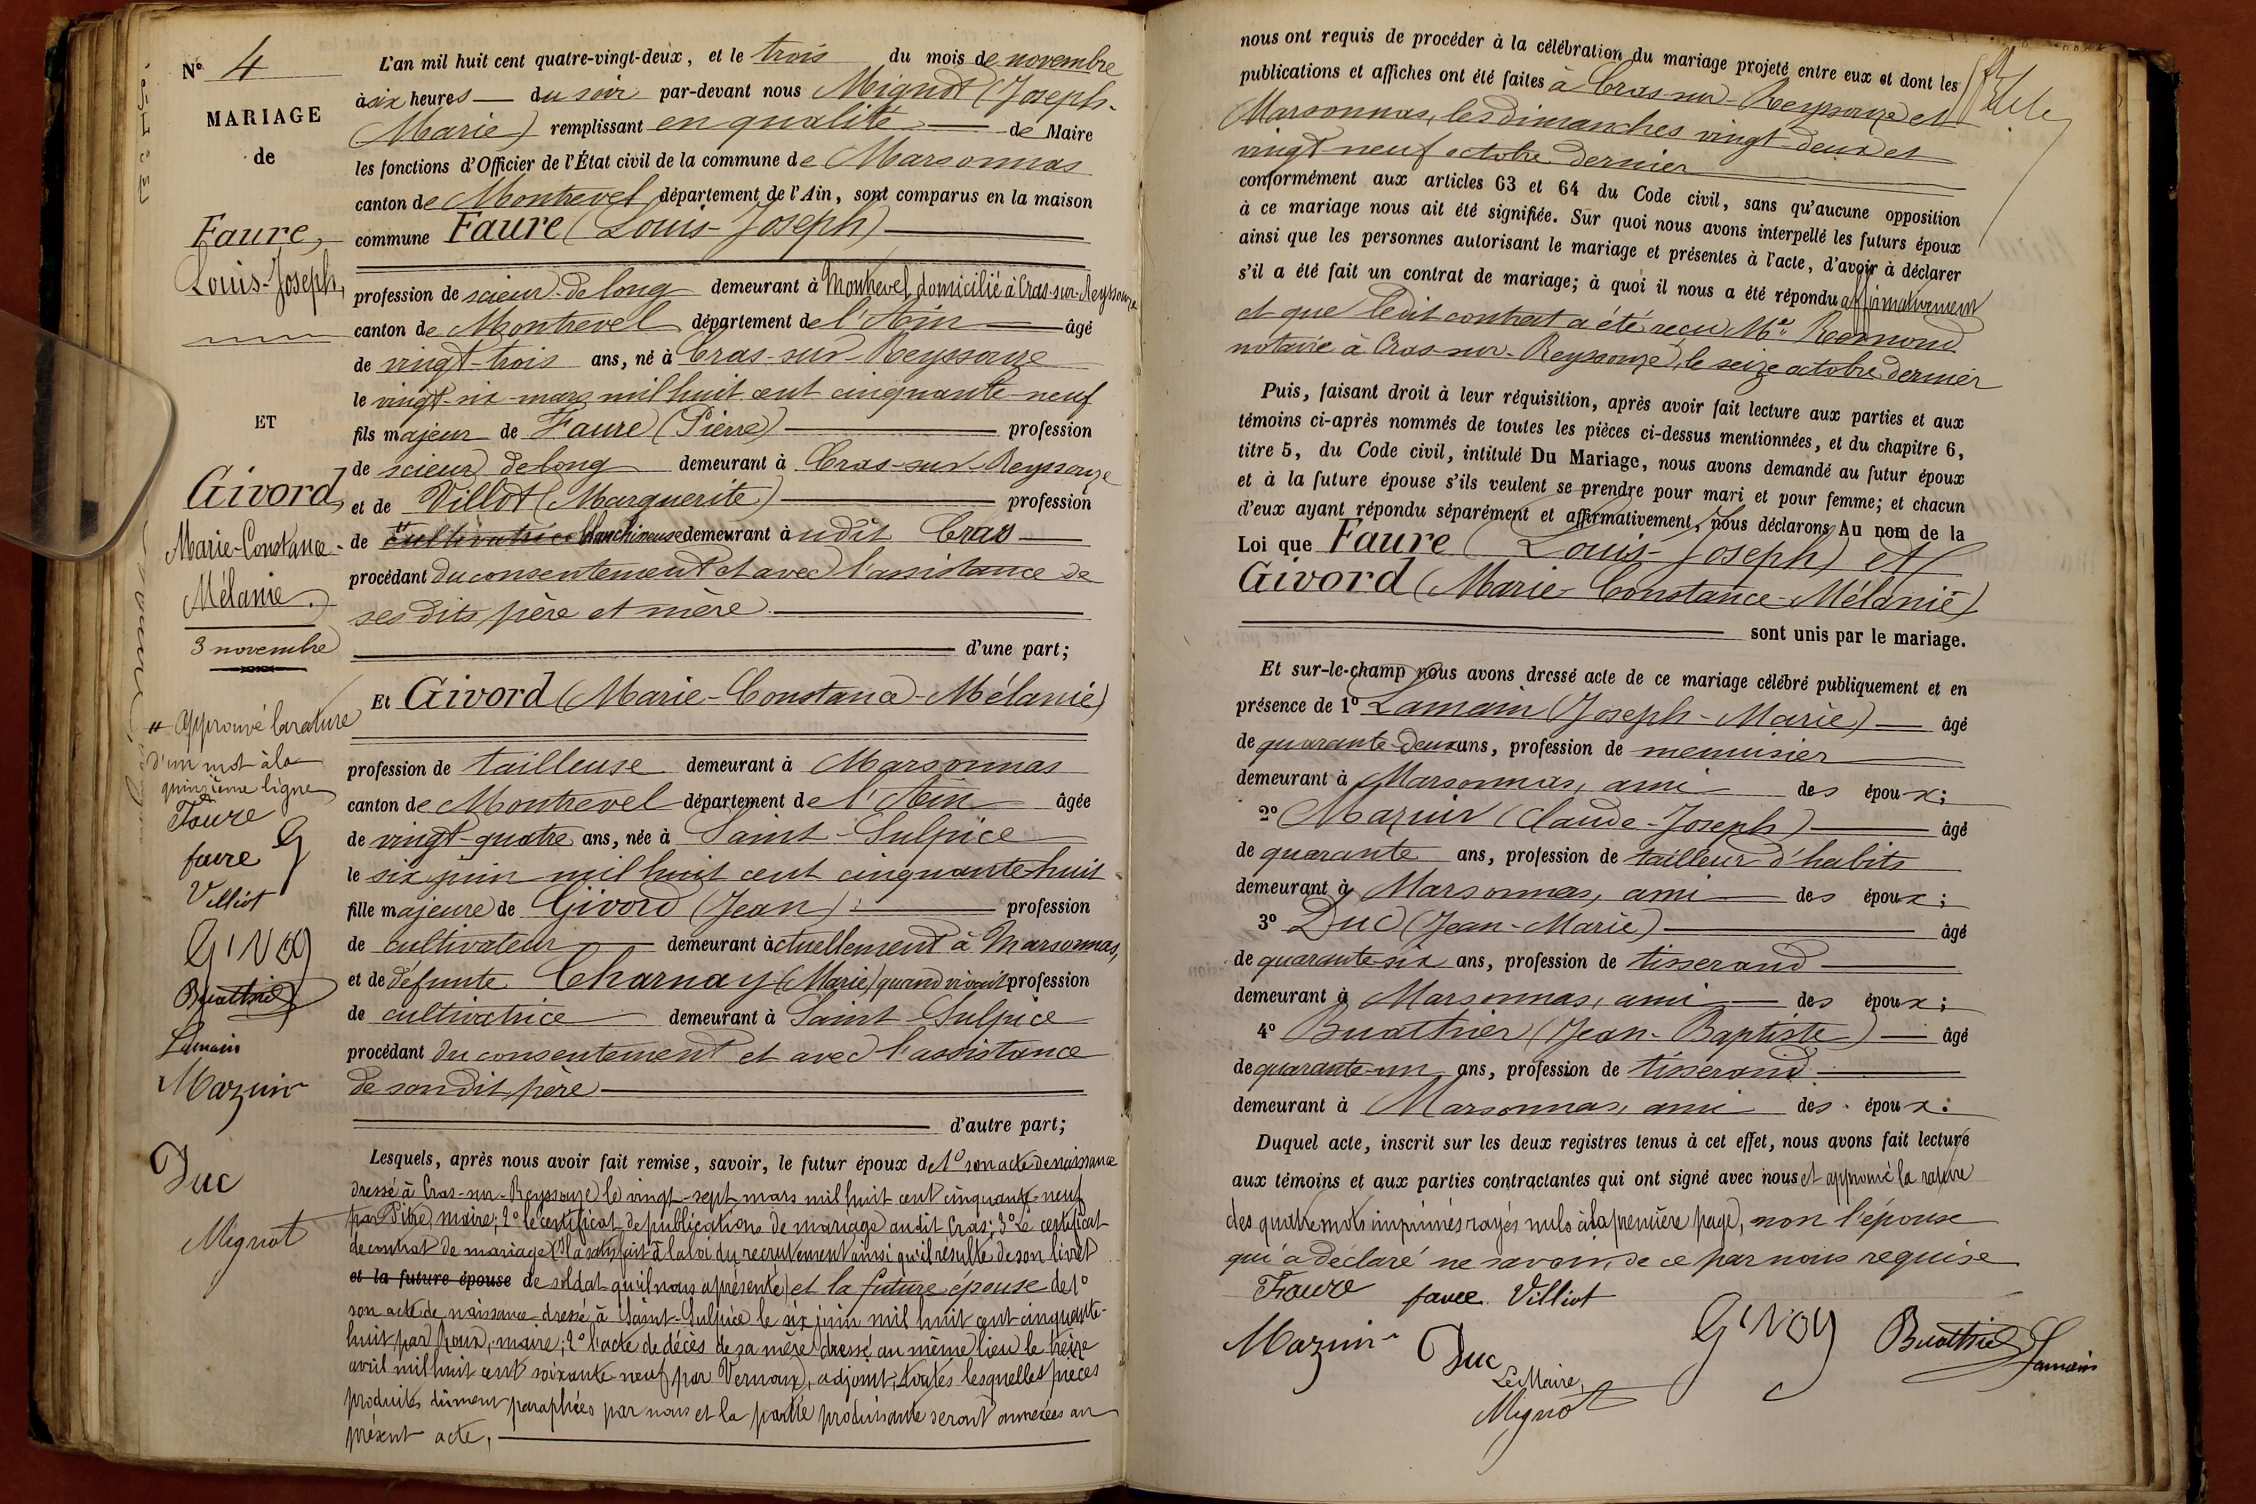 N° 4
MARIAGE
de
Faure,
Louis-Joseph,
ET
Givord,
Marie-Constance-
Mélanie.
3 novembre
" Approuvé la rature
d'un mot à la
quinzième ligne
Faure
faure G
Villiot
Givog
Buathier
Lamain
Mazuir
Duc
Mignot
L'an mil huit cent quatre-vingt-deux, et le trois du mois de novembre
à six heures du soir par-devant nous Mignot (Joseph-
Marie) remplissant en qualité de Maire
les fonctions d'Officier de l'État civil de la commune de Marsonnas
canton de Montrevel département de l'Ain, sont comparus en la maison
commune Faure (Louis-Joseph)
profession de scieur de long demeurant à Montrevel, domicilié à Cras-sur-Reyssouze
canton de Montrevel département de l'Ain âgé
de vingt-trois ans, né à Cras-sur-Reyssouze
le vingt-six mars mil huit cent cinquante-neuf
fils majeur de Faure (Pierre) profession
de scieur de long demeurant à Cras-sur-Reyssouze
et de Villot (Marguerite) profession
de " cultivatrice blanchisseuse demeurant à udit Cras
procédant du consentement et avec l'assistance de
ses dits père et mère
d'une part;
Et Givord (Marie-Constance-Mélanie)
profession de tailleuse demeurant à Marsonnas
canton de Montrevel département de l'Ain âgée
de vingt-quatre ans, née à Saint-Sulpice
le six juin mil huit cent cinquante-huit
fille majeure de Givord (Jean) profession
de cultivateur demeurant actuellement à Marsonnas,
et de défunte Charnay (Marie) quand vivait profession
de cultivatrice demeurant à Saint-Sulpice
procédant du consentement et avec l'assistance
de son dit père
d'autre part;
Lesquels, après nous avoir fait remise, savoir, le futur époux de 1° son acte de naissance
dressé à Cras-sur-Reyssouze le vingt-sept mars mil huit cent cinquante-neuf
par Pitre, maire; 2° le certificat de publications de mariage audit Cras; 3° Le certificat
de contrat de mariage (Il a satisfait à la loi du recrutement ainsi qu'il résulte de son livret
et la future épouse de soldat qu'il nous a présenté) et la future épouse de 1°
son acte de naissance dressé à Saint-Sulpice le six juin mil huit cent cinquante-
huit par Roux, maire; 2° l'acte de décès de sa mère dressé au même lieu le treize
avril mil huit cent soixante-neuf par Vernoux, adjoint, toutes lesquelles pièces
produites dûment paraphées par nous et la partie produisante seront annexées au
présent acte,
nous ont requis de procéder à la célébration du mariage projeté entre eux et dont les
publications et affiches ont été faites à Cras-sur-Reyssouze et
Marsonnas, les dimanches vingt-deux et
vingt-neuf octobre dernier
conformément aux articles 63 et 64 du Code civil, sans qu'aucune opposition
à ce mariage nous ait été signifiée. Sur quoi nous avons interpellé les futurs époux
ainsi que les personnes autorisant le mariage et présentes à l'acte, d'avoir à déclarer
s'il a été fait un contrat de mariage; à quoi il nous a été répondu affirmativement
et que ledit contrat a été reçu Me notaire à Cras-sur-Reyssouze, le seize octobre dernier
Puis, faisant droit à leur réquisition, après avoir fait lecture aux parties et aux
témoins ci-après nommés de toutes les pièces ci-dessus mentionnées, et du chapitre 6,
titre 5, du Code civil, intitulé Du Mariage, nous avons demandé au futur époux
et à la future épouse s'ils veulent se prendre pour mari et pour femme; et chacun
d'eux ayant répondu séparément et affirmativement, nous déclarons Au nom de la
Loi que Faure (Louis-Joseph) et
Givord (Marie-Constance-Mélanie)
sont unis par le mariage.
Et sur-le-champ nous avons dressé acte de ce mariage célébré publiquement et en
présence de 1° Lamain (Joseph-Marie) âgé
de quarante-deux ans, profession de menuisier
demeurant à Marsonnas, ami des époux;
2° Mazuir (Claude-Joseph) âgé
de quarante ans, profession de tailleur d'habits
demeurant à Marsonnas, ami des époux;
3° Duc (Jean-Marie) âgé
de quarante-six ans, profession de tisserand
demeurant à Marsonnas, ami des époux;
4° Buathier (Jean-Baptiste) âgé
de quarante-un ans, profession de tisserand
demeurant à Marsonnas, ami des époux.
Duquel acte, inscrit sur les deux registres tenus à cet effet, nous avons fait lecture
aux témoins et aux parties contractantes qui ont signé avec nous et approuvé la rature
des quatre mots imprimés rayés nuls à la première page, non l'épouse
qui a déclaré ne savoir, de ce par nous requise
Faure faure Villiot
Mazuir Duc Givoy Buathier Lamain
Le Maire,
Mignot